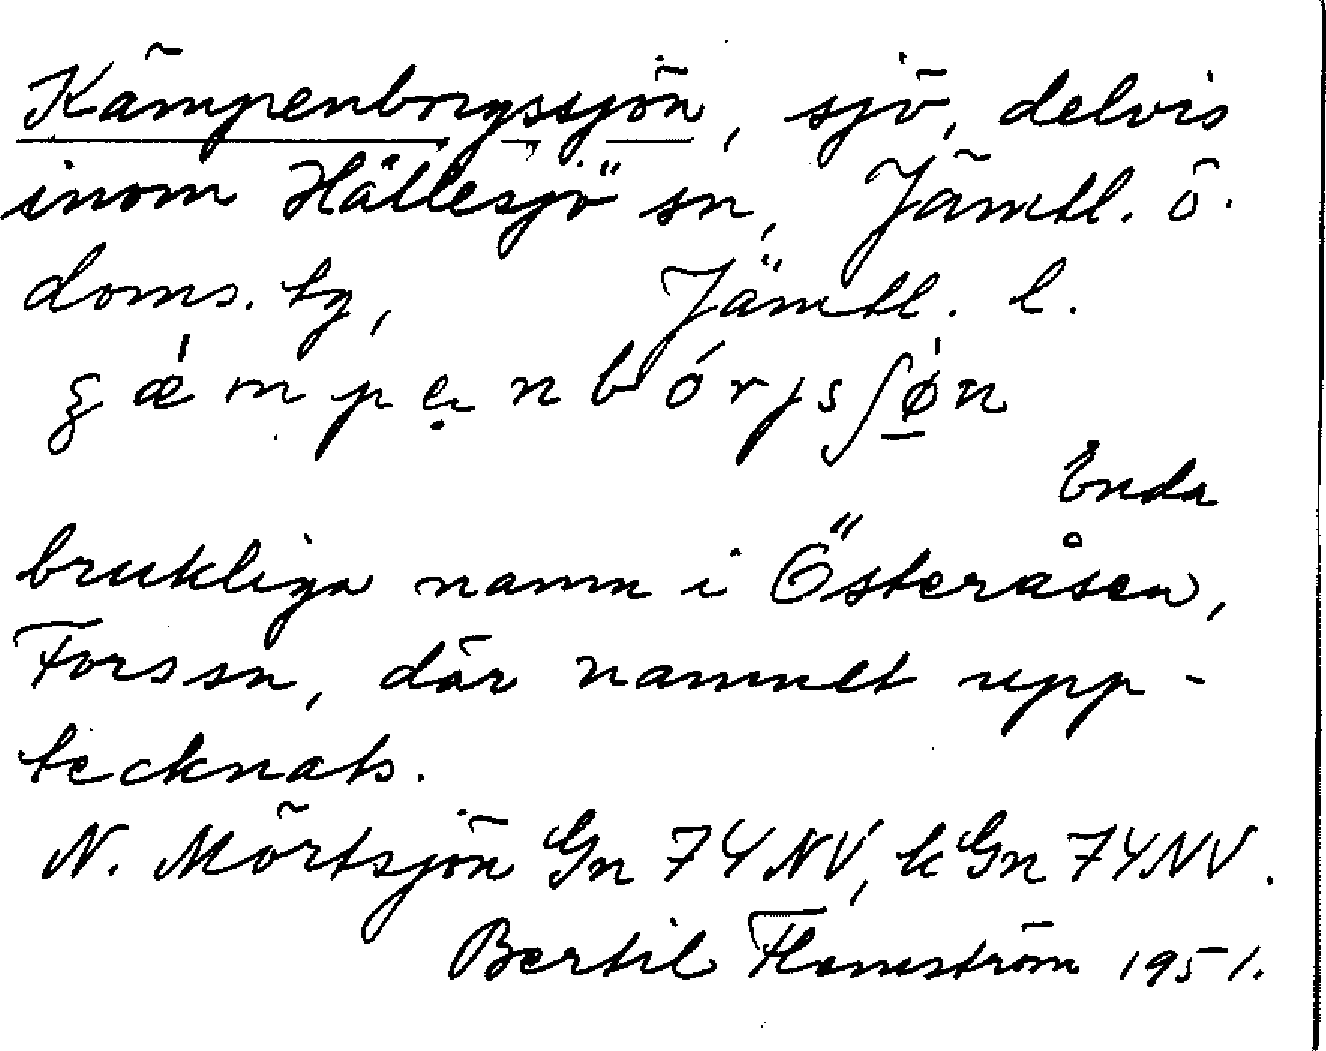 Kämpenborgssjön, sjö, delvis
inom Hällesjö sn, Jämtl. ö.
doms. tg, Jämtl. l.
ʒǽmpẹnbórjsʃǿ̱n
Enda
brukliga namn i Österåsen,
Fors sn, där namnet upp-
tecknats.
N. Mörtsjön Gn 74 NV, k Gn 74 NV.
Bertil Flemström 1951.